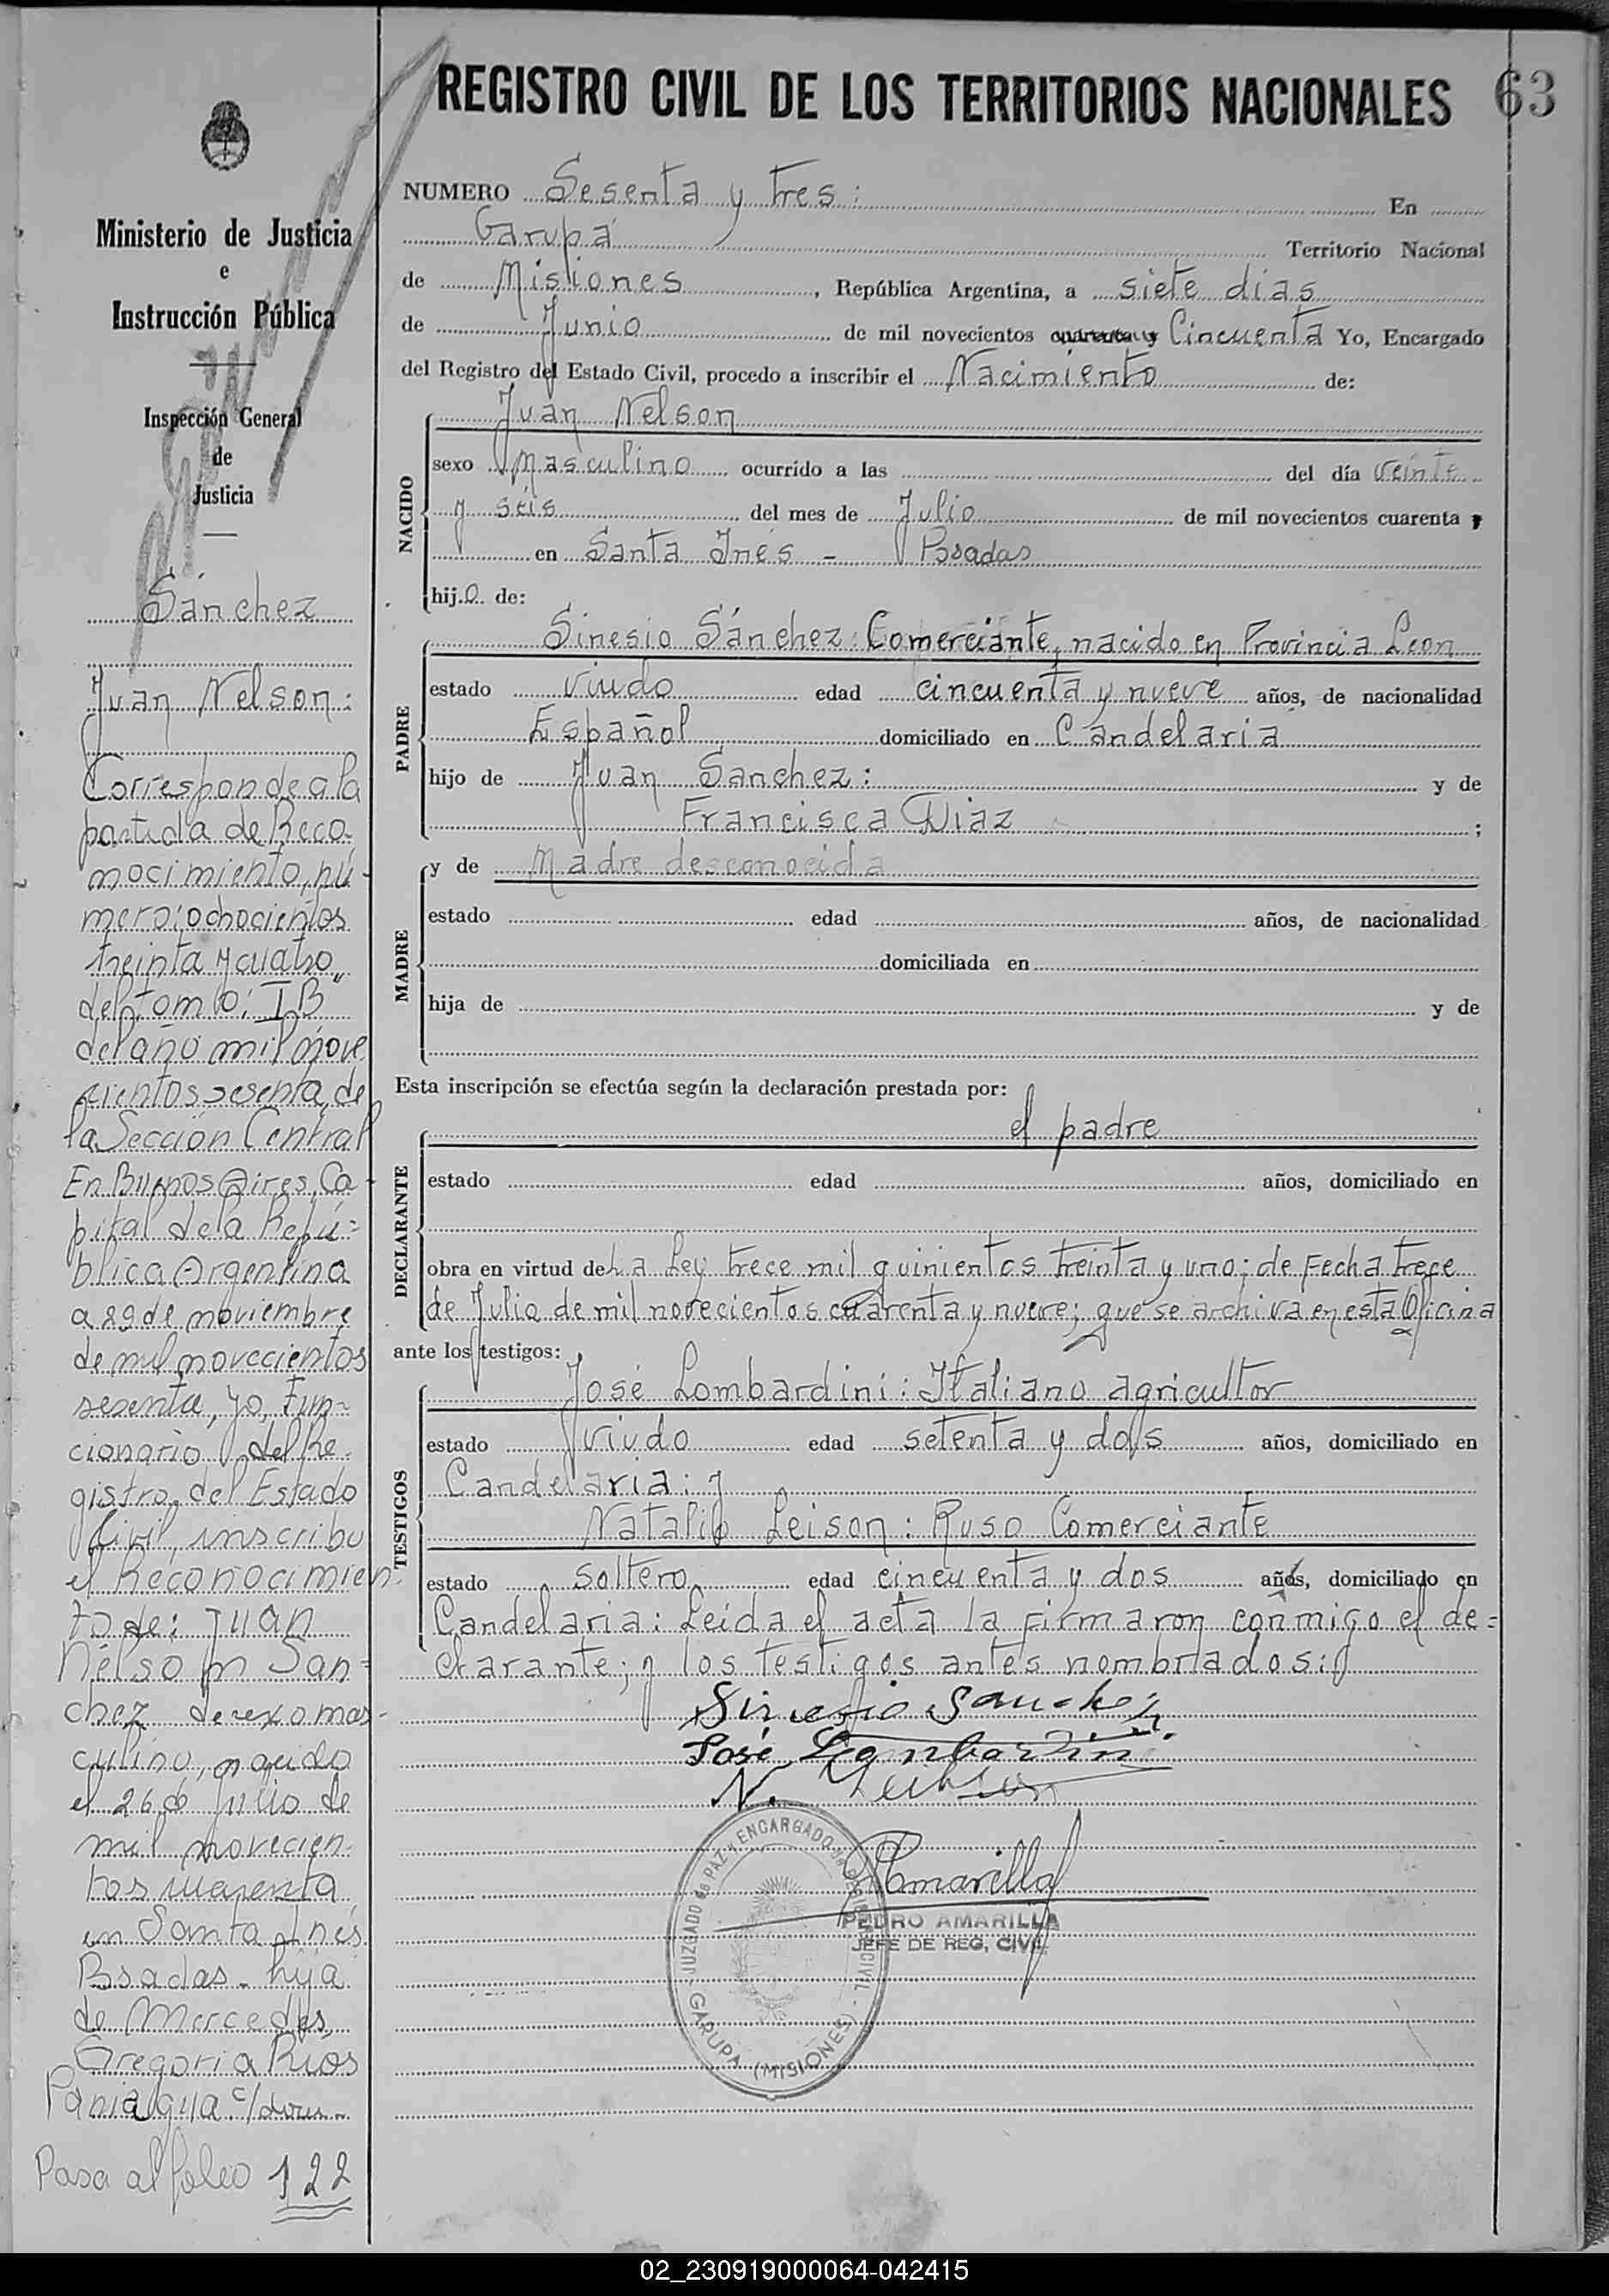 REGISTRO CIVIL DE LOS TERRITORIOS NACIONALES 63
Ministerio de Justicia
e
Instrucción Pública
Inspección General
de
Justicia
Sánchez
Juan Nelson:
Corresponde a la
partida de Reco-
nocimiento, nú-
mero: ochocientos
treinta y cuatro
del tomo: I B"
del año mil nove
cientos sesenta, de
la Sección Central
En Buenos Aires, Ca-
pital de la Repú=
blica Argentina
a 29 de noviembre
de mil novecientos
sesenta, yo, Fun-
cionario del Re-
gistro del Estado
Civil, inscribo
el Reconocimien-
to de: JUAN
Nelson San=
chez de sexo mas-
culino, nacido
el 26 de Julio de
mil novecien-
tos cuarenta
en Santa Inés
Posadas - hijo
de Mercedes
Gregoria Rios
Paniagua c/
Pasa al folio 122
NUMERO Sesenta y tres: En
Garupá Territorio Nacional
de Misiones, República Argentina, a siete días
de Junio de mil novecientos cuarenta y Cincuenta Yo, Encargado
del Registro del Estado Civil, procedo a inscribir el Nacimiento de:
NACIDO
Juan Nelson
sexo Masculino ocurrido a las del día veinte
y séis del mes de Julio de mil novecientos cuarenta y
en Santa Inés - Posadas
hijo de:
PADRE
Sinesio Sánchez: Comerciante, nacido en Provincia Leon
estado viudo edad cincuenta y nueve años, de nacionalidad
Español domiciliado en Candelaria
hijo de Juan Sanchez: y de
Francisca Diaz ;
MADRE
y de Madre desconocida
estado edad años, de nacionalidad
domiciliada en
hija de y de
Esta inscripción se efectúa según la declaración prestada por:
DECLARANTE
el padre
estado edad años, domiciliado en
obra en virtud de La Ley trece mil quinientos treinta y uno; de Fecha trece
de Julio de mil novecientos cuarenta y nueve; que se archiva en esta Oficina
ante los testigos:
TESTIGOS
José Lombardini: Italiano agricultor
estado viudo edad setenta y dos años, domiciliado en
Candelaria: y
Natalio Leison: Ruso Comerciante
estado soltero edad cincuenta y dos años, domiciliado en
Candelaria: Leída el acta la firmaron conmigo el de=
clarante; y los testigos antes nombrados:
Sinesio Sanchez
José Lombardini
N. Leison
PAmarilla
PEDRO AMARILLA
JEFE DE REG. CIVIL
JUZGADO DE PAZ Y ENCARGADO DEL REGISTRO CIVIL
GARUPA (MISIONES)
02_230919000064-042415